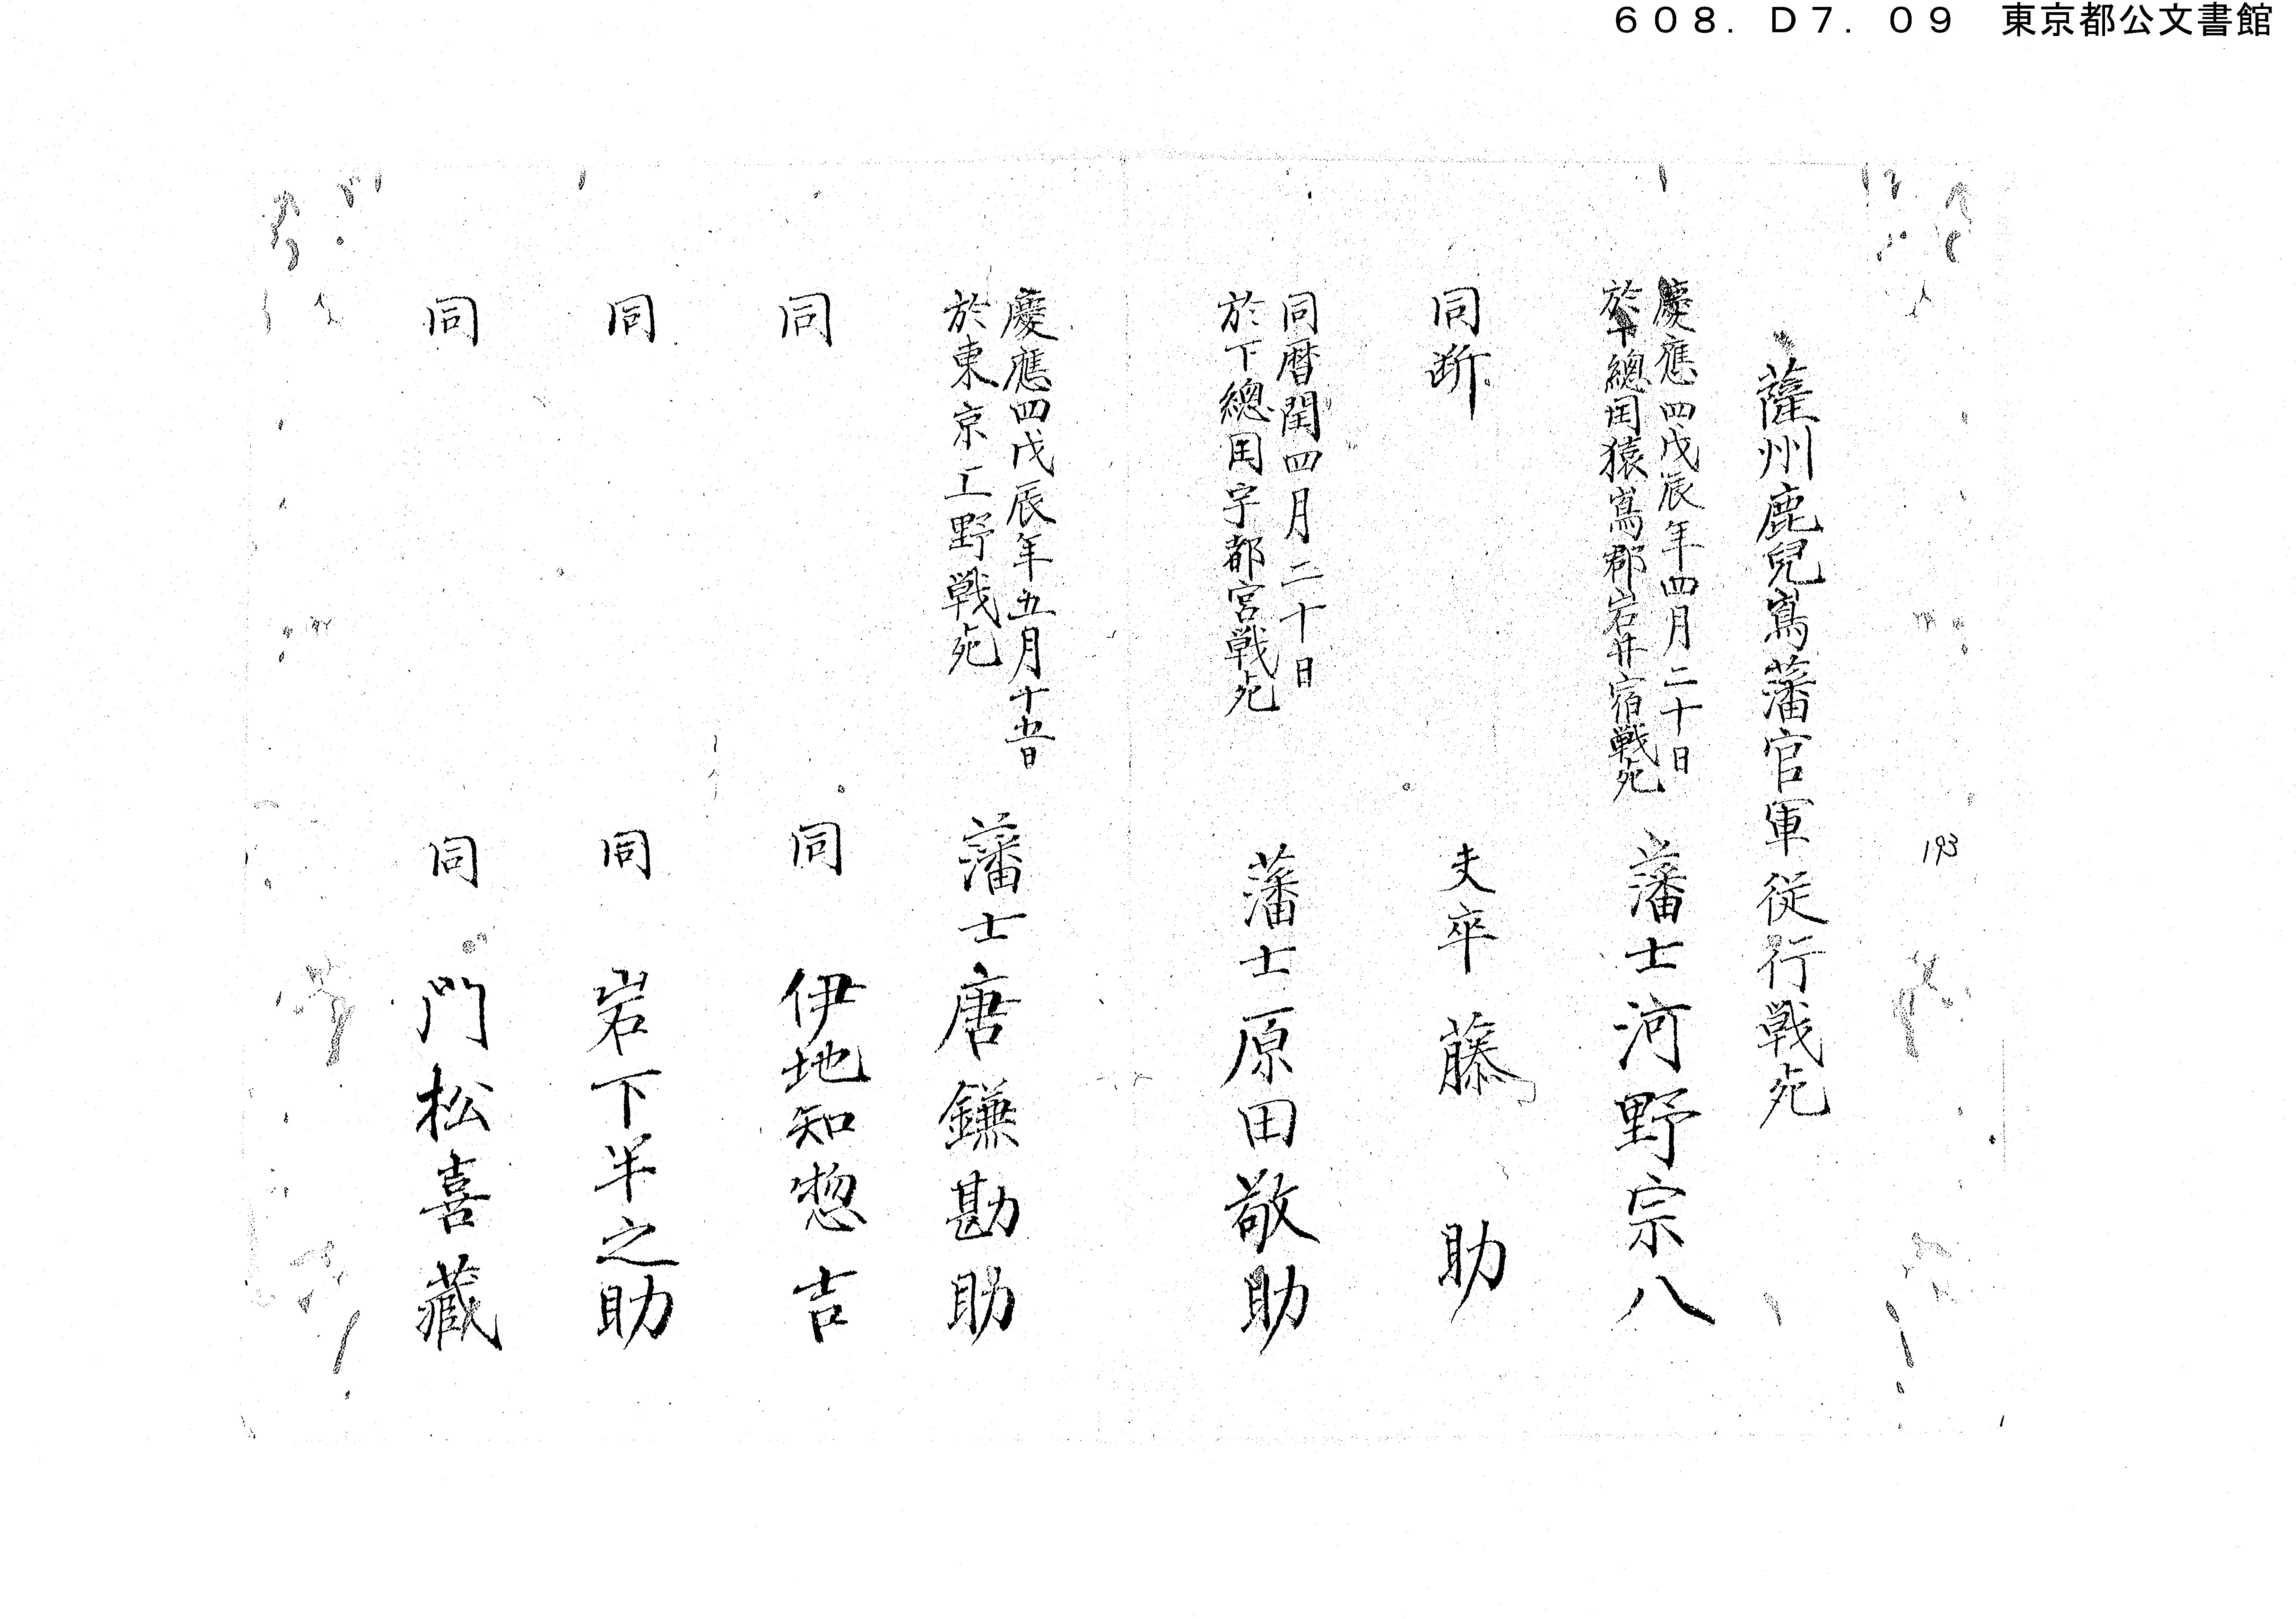 608. D7. 09 東京都公文書館
193
薩州鹿兒嶌藩官軍従行戦死
慶應四戊辰年四月二十日
於下總国猿嶌郡岩井宿戦死
藩士河野宗八
同断
夫卒 藤助
同暦閏四月二十日
於下總国宇都宮戦死
藩士原田敬助
慶應四戊辰年五月十五日
於東京上野戦死
藩士唐鎌勘助
同 同 伊地知惣吉
同 同 岩下半之助
同 同 門松喜藏